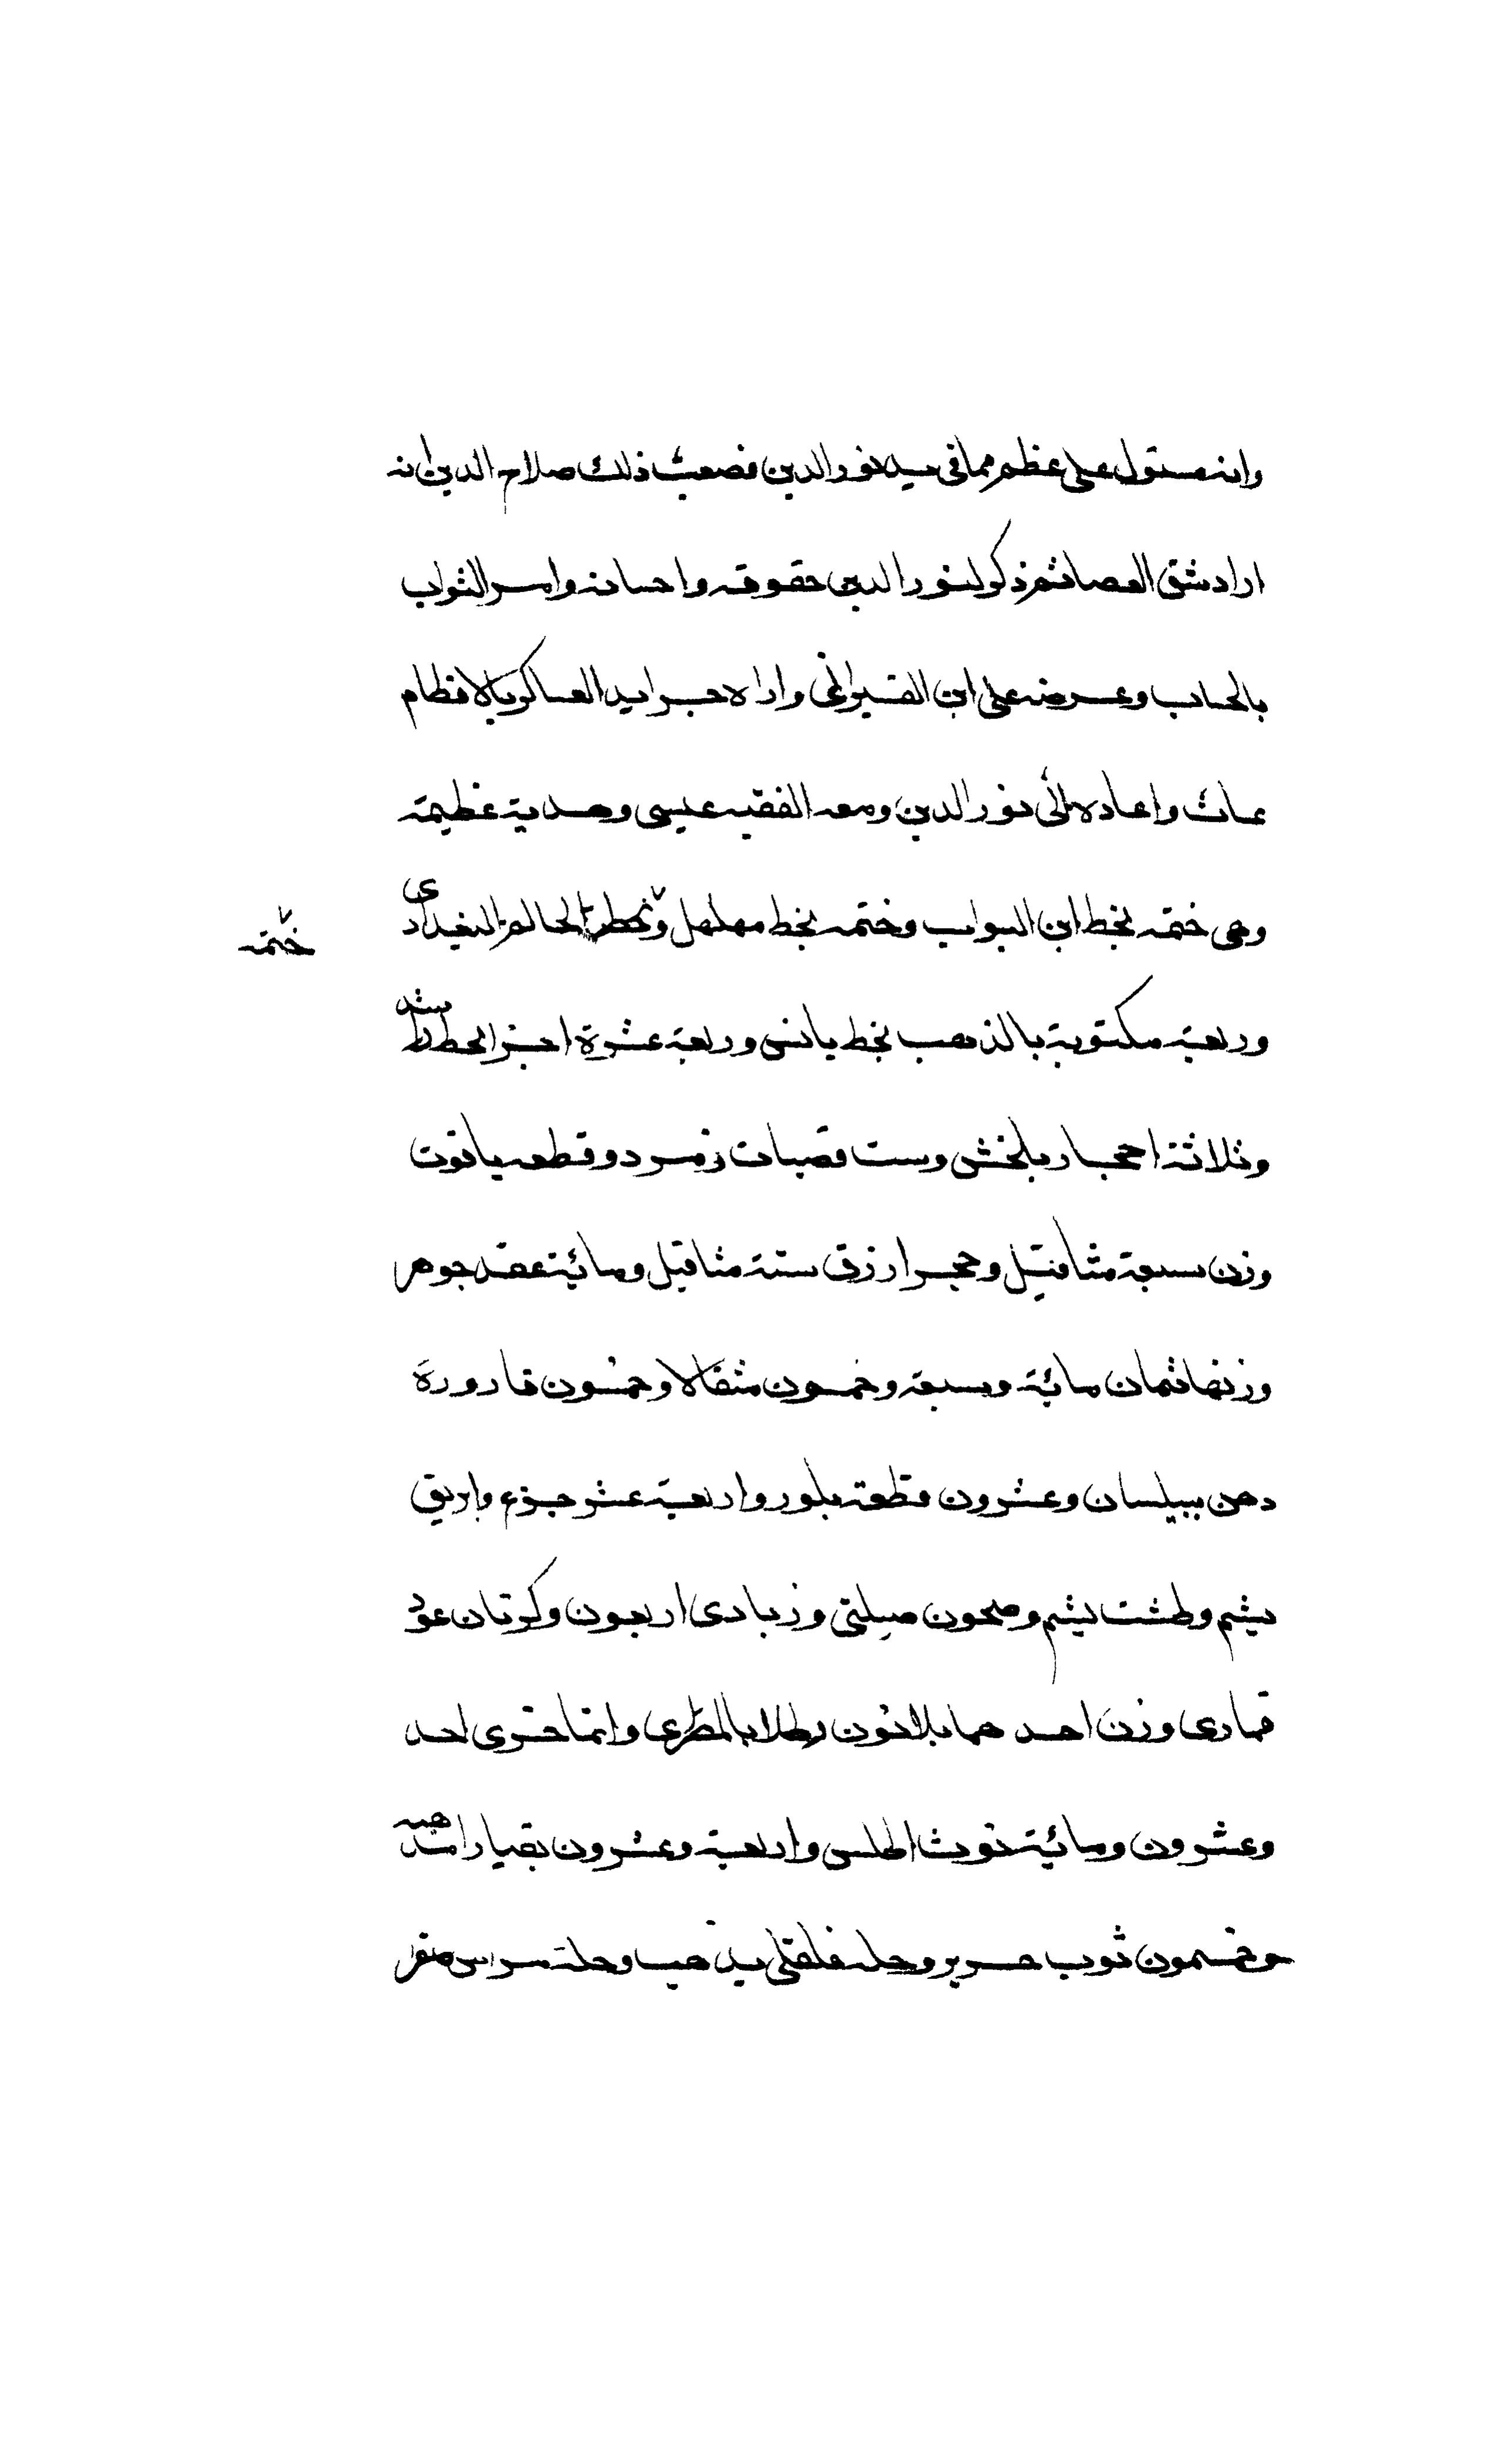 وانه مستول على عظم مما في يد نور الدين فصعب ذلك صلاح الدين انه
اراد شق العصا ثم ذكر لنور الدين حقوقه واحسانه وامر النواب
بالحساب وعرضه على ابن القسيراني واراه جرايد العساكر بالاقطاعات
واعاده الى نور الدين ومعه الفقيه عيسى وهدية عظيمة
وهي ختمة بخط ابن البواب وختمه بخط مهلهل وبخط الحاكم البغدادى
ختمه
وربعة مكتوبة بالذهب بخط يانس وربعة عشرة اجزا بخط راشد
وثلاثة احجار بلخش وست قصبات زمرد وقطعه ياقوت
وزن سبعة مثاقيل وحجر ازرق ستة مثاقيل ومائية عقد جوهر
وزنها ثمان مائية وسبعة وخمسون مثقالا وخمسون قارورة
دهن ببلسان وعشرون قطعة بلور واربعة عشر جزع وابريق
يشم وطشت يشم وصحون صيني وزبادى اربعون وكرتان عود
قمارى وزن احدهما ثلاثون رطلا بالمصرى والاخرى احد
وعشرون ومائية ثوب اطلس واربعة وعشرون بقيارا مذهبه
وخمسون ثوب حرير وحلة فلفلي مذهب وحلة مرايش صفر